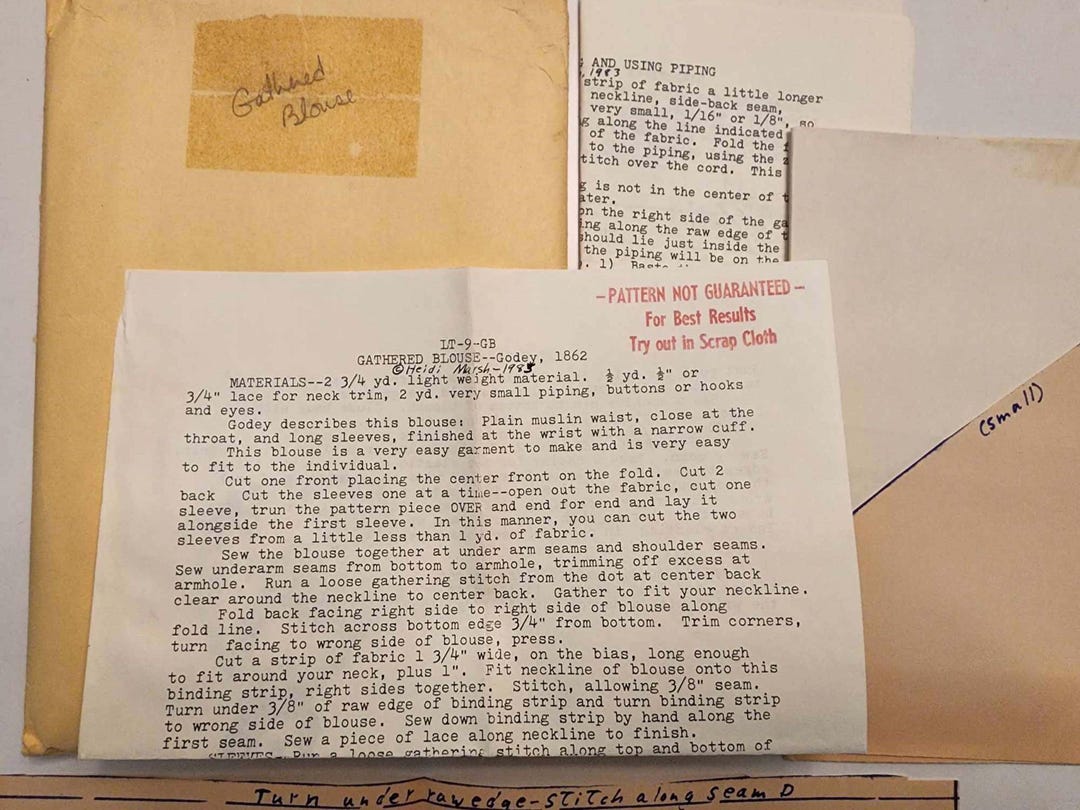 Gathered
Blouse
AND USING PIPING
, 1983
strip of fabric a little longer
neckline, side-back seam,
very small, 1/16" or 1/8", so
along the line indicated
of the fabric. Fold the
to the piping, using the
titch over the cord. This
is not in the center of
ater.
on the right side of the ga
ing along the raw edge of t
should lie just inside the
the piping will be on the
. 1) Baste
-PATTERN NOT GUARANTEED-
For Best Results
Try out in Scrap Cloth
LT-9-GB
GATHERED BLOUSE--Godey, 1862
©Heidi Marsh-1983
MATERIALS--2 3/4 yd. light weight material. ½ yd. ½" or
3/4" lace for neck trim, 2 yd. very small piping, buttons or hooks
and eyes.
Godey describes this blouse: Plain muslin waist, close at the
throat, and long sleeves, finished at the wrist with a narrow cuff.
This blouse is a very easy garment to make and is very easy
to fit to the individual.
Cut one front placing the center front on the fold. Cut 2
back Cut the sleeves one at a time--open out the fabric, cut one
sleeve, trun the pattern piece OVER and end for end and lay it
alongside the first sleeve. In this manner, you can cut the two
sleeves from a little less than 1 yd. of fabric.
Sew the blouse together at under arm seams and shoulder seams.
Sew underarm seams from bottom to armhole, trimming off excess at
armhole. Run a loose gathering stitch from the dot at center back
clear around the neckline to center back. Gather to fit your neckline.
Fold back facing right side to right side of blouse along
fold line. Stitch across bottom edge 3/4" from bottom. Trim corners,
turn facing to wrong side of blouse, press.
Cut a strip of fabric 1 3/4" wide, on the bias, long enough
to fit around your neck, plus 1". Fit neckline of blouse onto this
binding strip, right sides together. Stitch, allowing 3/8" seam.
Turn under 3/8" of raw edge of binding strip and turn binding strip
to wrong side of blouse. Sew down binding strip by hand along the
first seam. Sew a piece of lace along neckline to finish.
SLEEVES--Run a loose gathering stitch along top and bottom of
(small)
Turn under raw edge-stitch along seam D